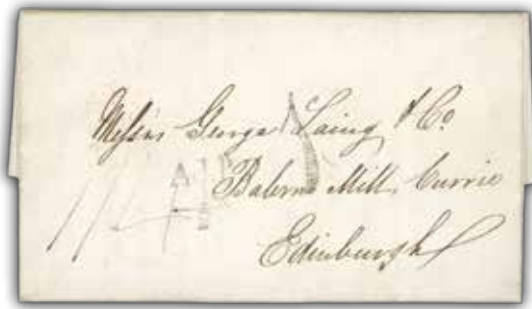 Messrs George Laing & Co.
Balerno Mill, Currie
Edinburgh